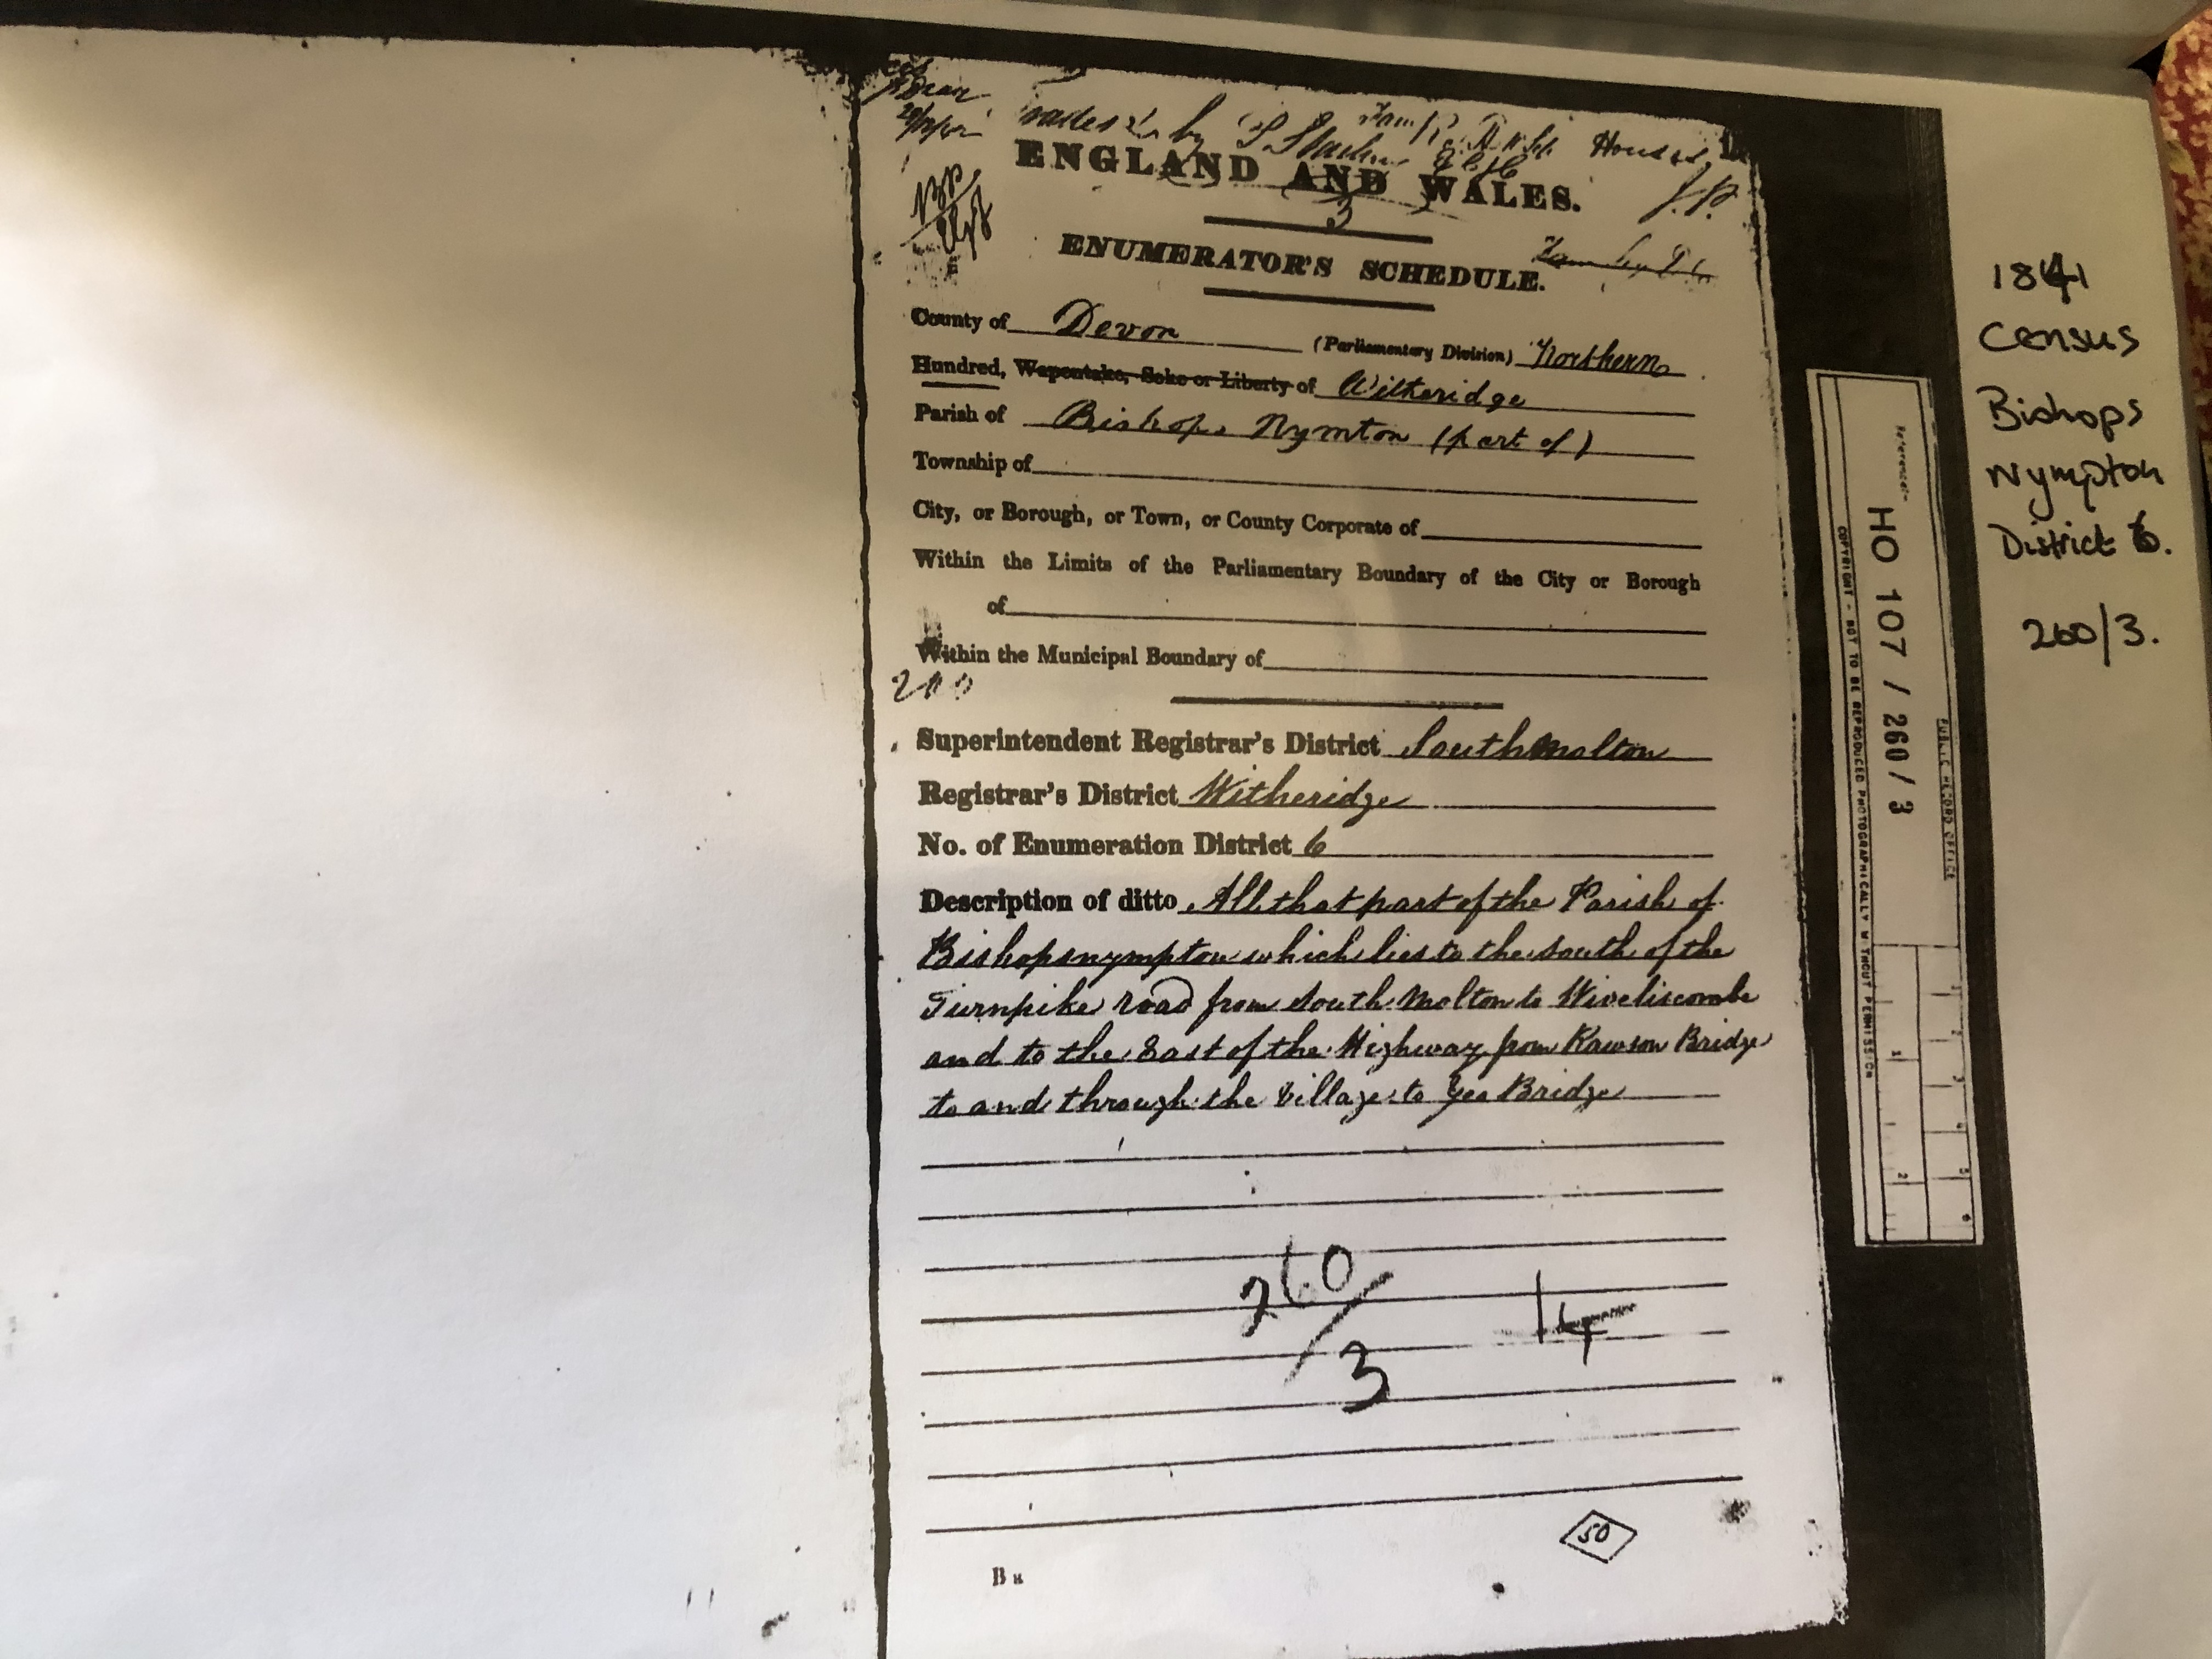 by
Houses
ENGLAND AND WALES.
3
J.P.
ENUMERATOR'S SCHEDULE.
County of Devon (Parliamentary Division) Northern
Hundred, Wapentake, Soke or Liberty of Witheridge
Parish of Bishops Nymton (part of)
Township of
City, or Borough, or Town, or County Corporate of
Within the Limits of the Parliamentary Boundary of the City or Borough
of
Within the Municipal Boundary of
Superintendent Registrar's District South Molton
Registrar's District Witheridge
No. of Enumeration District 6
Description of ditto All that part of the Parish of
Bishopsnympton which lies to the South of the
Turnpike road from South Molton to Wiveliscombe
and to the East of the Highway from Rawson Bridge
to and through the Village to Yeo Bridge
260/3
14
50
B
PUBLIC RECORD OFFICE
Reference:-
HO 107 / 260 / 3
COPYRIGHT - NOT TO BE REPRODUCED PHOTOGRAPHICALLY WITHOUT PERMISSION
1
2
1841
Census
Bishops
Nympton
District 6.
260/3.